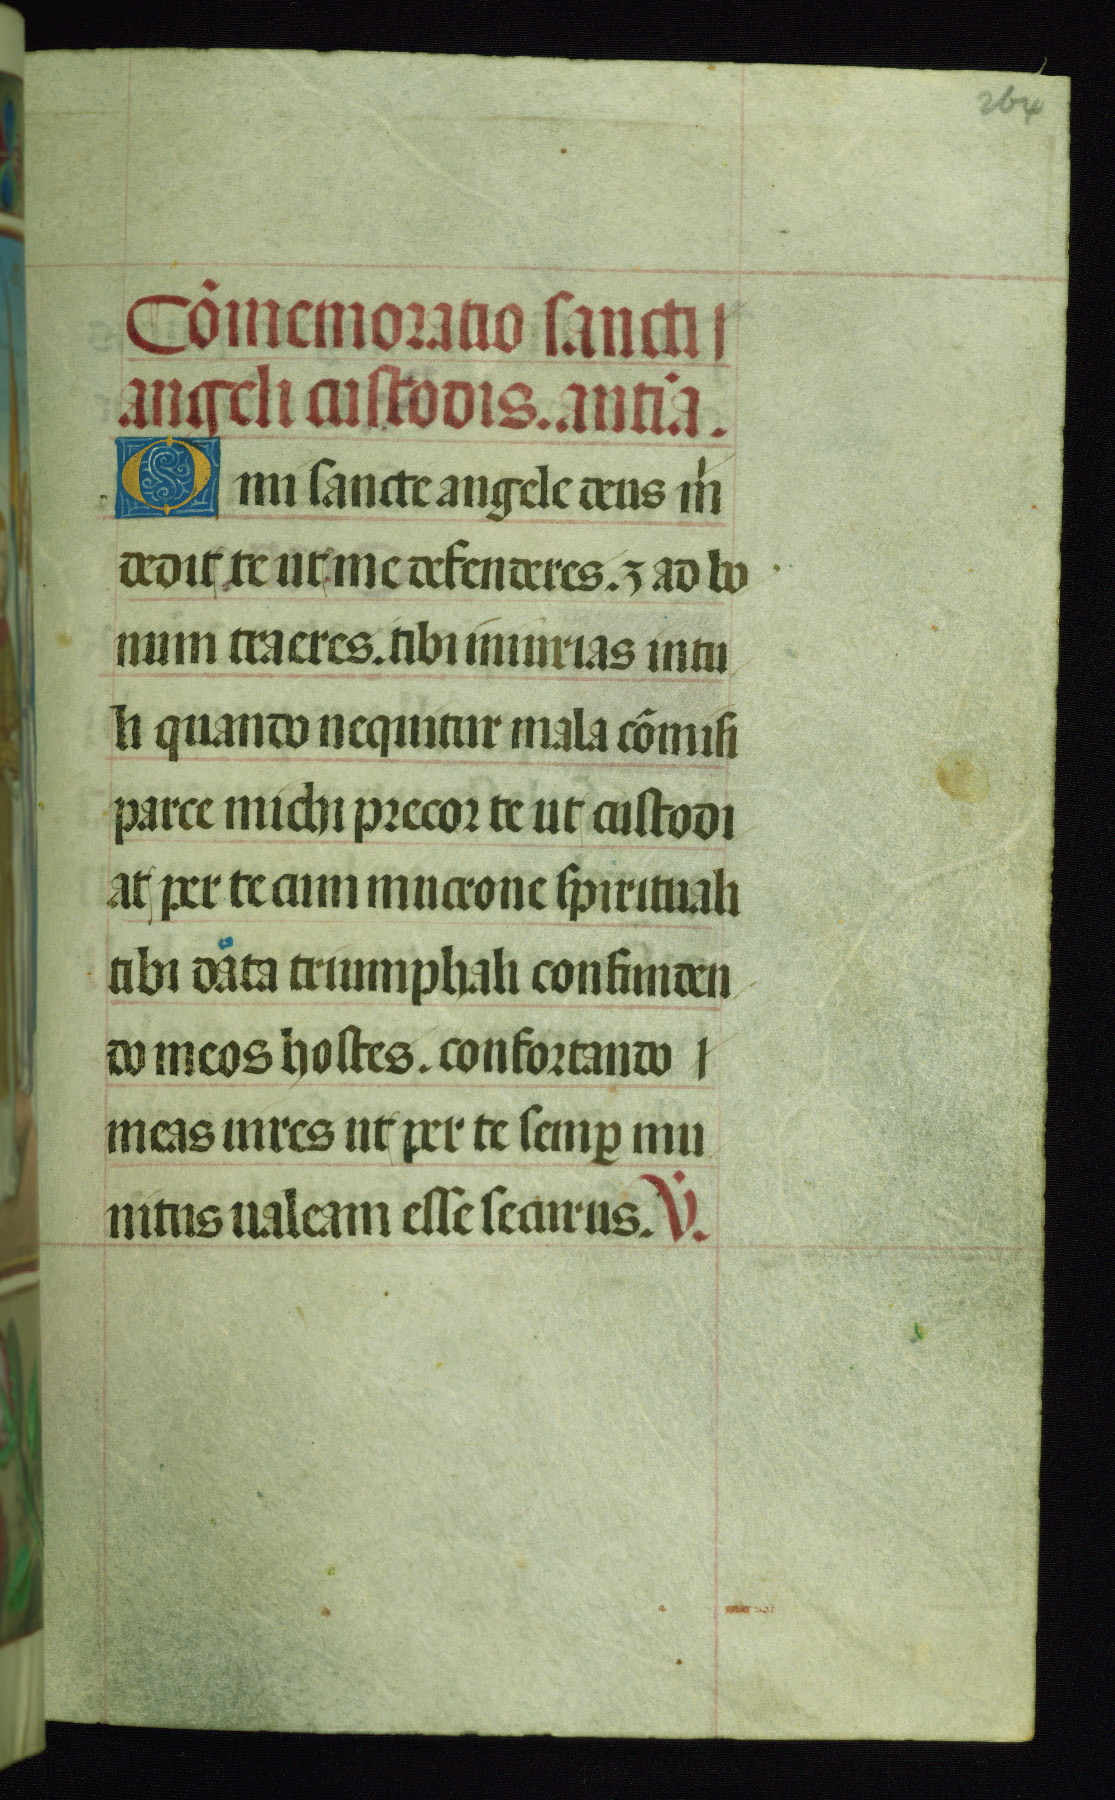 264
Cõmemoratio sancti
angeli custodis. antiã.
O mi sancte angele deus m̃
dedit te ut me defenderes. ⁊ ad bo
num traeres. tibi iniurias intu
li quando nequitur mala cõmisi
parce michi precor te ut custodi
at per te cum mucrone spirituali
tibi data triumphali confunden
do meos hostes. confortando
meas uires ut per te semꝑ mu
nitus ualeam esse securus. ℣.